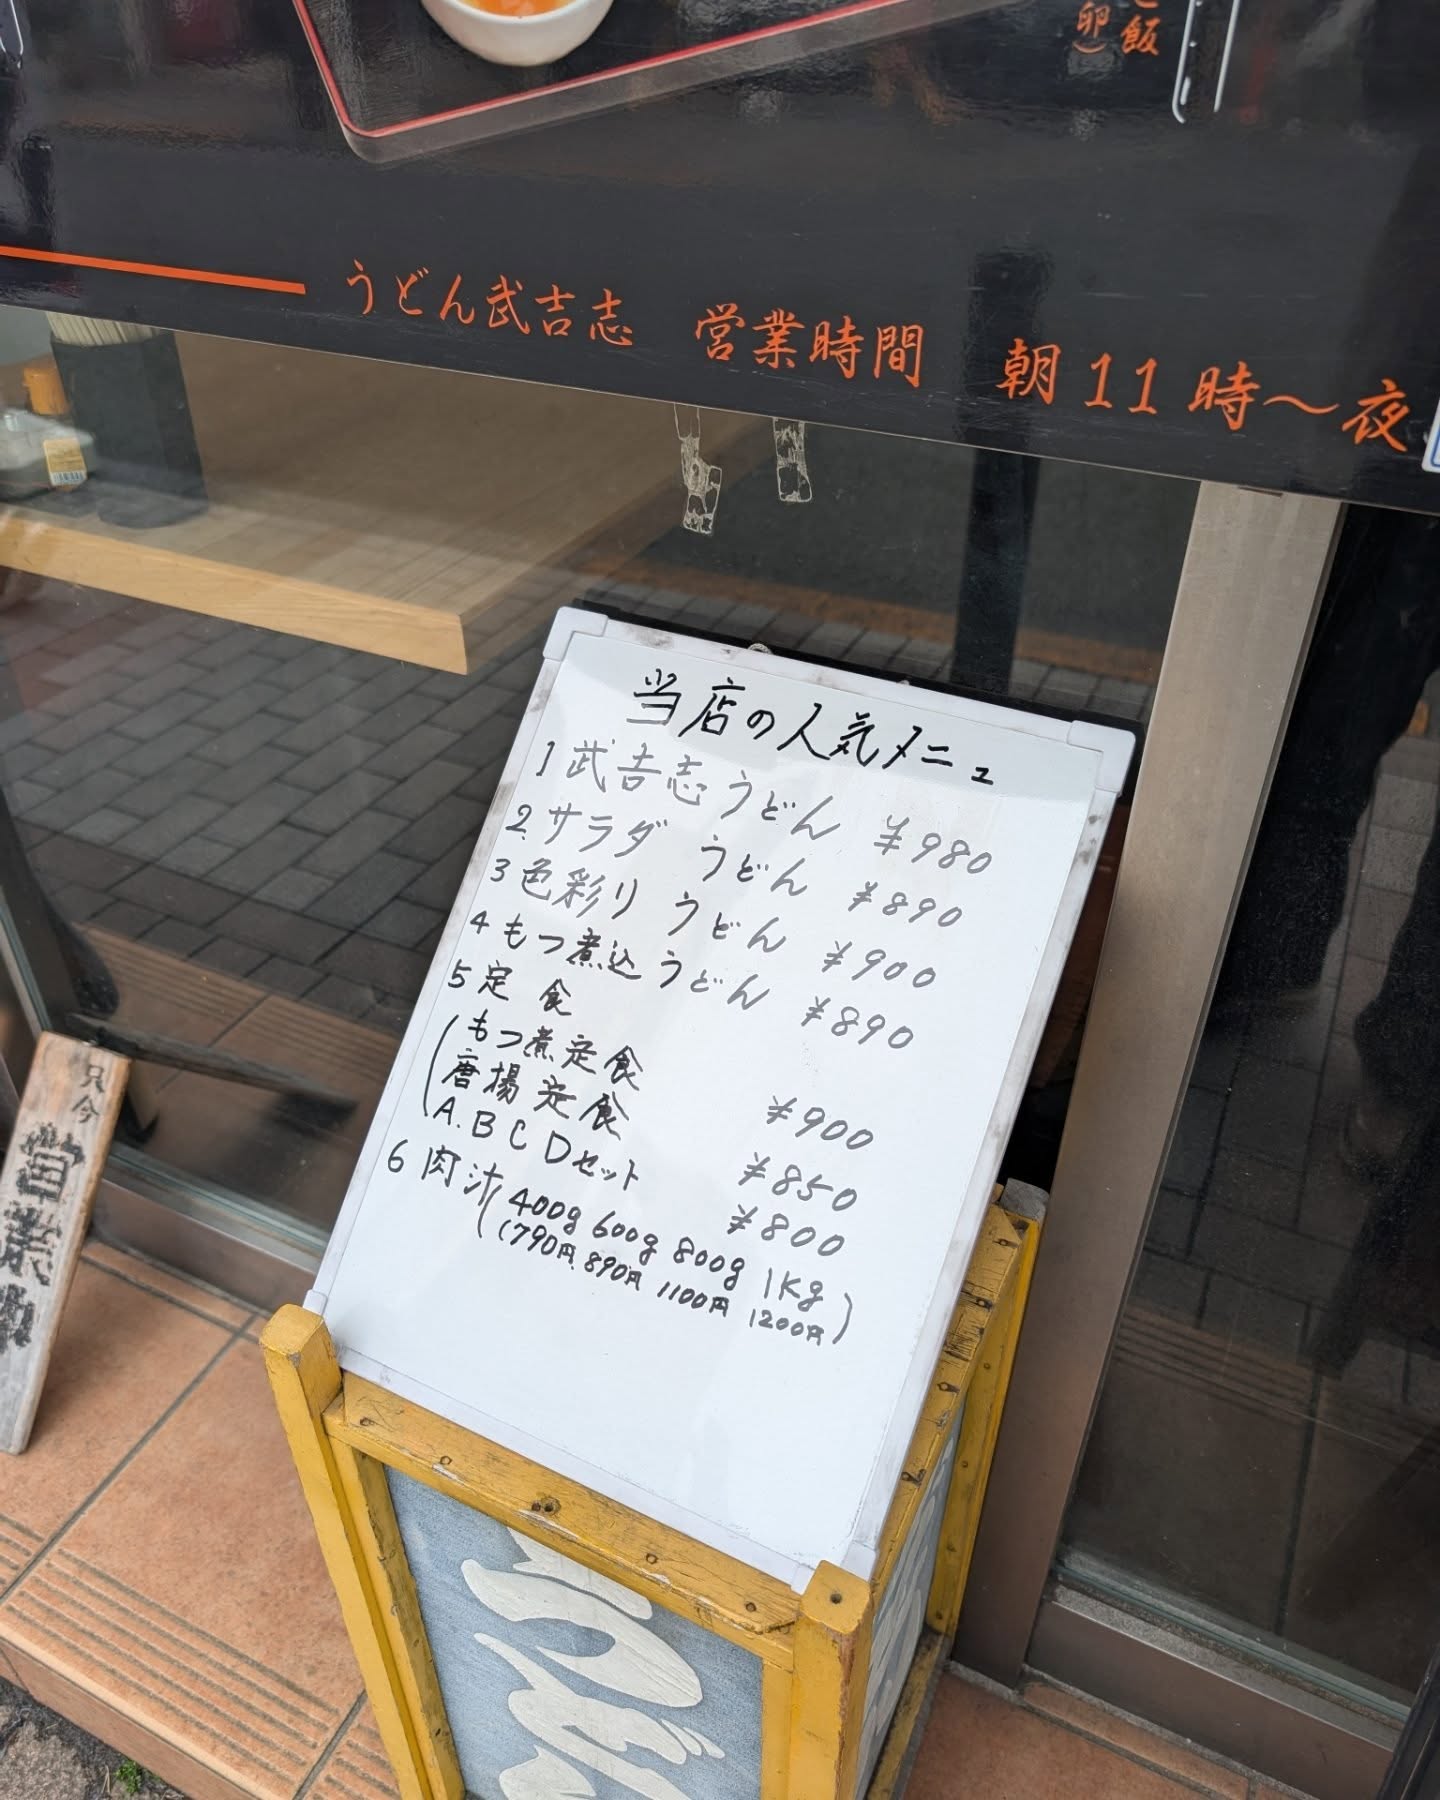 飯
卵)
うどん武吉志 営業時間 朝11時～夜
当店の人気メニュー
1 武吉志うどん ¥980
2. サラダ うどん ¥890
3 色彩り うどん ¥900
4 もつ煮込うどん ¥890
5 定食
(もつ煮定食 ¥900
唐揚定食 ¥850
A.BCDセット ¥800
6 肉汁(400g 600g 800g 1Kg)
(790円 890円 1100円 1200円)
只今
営業中
うどん